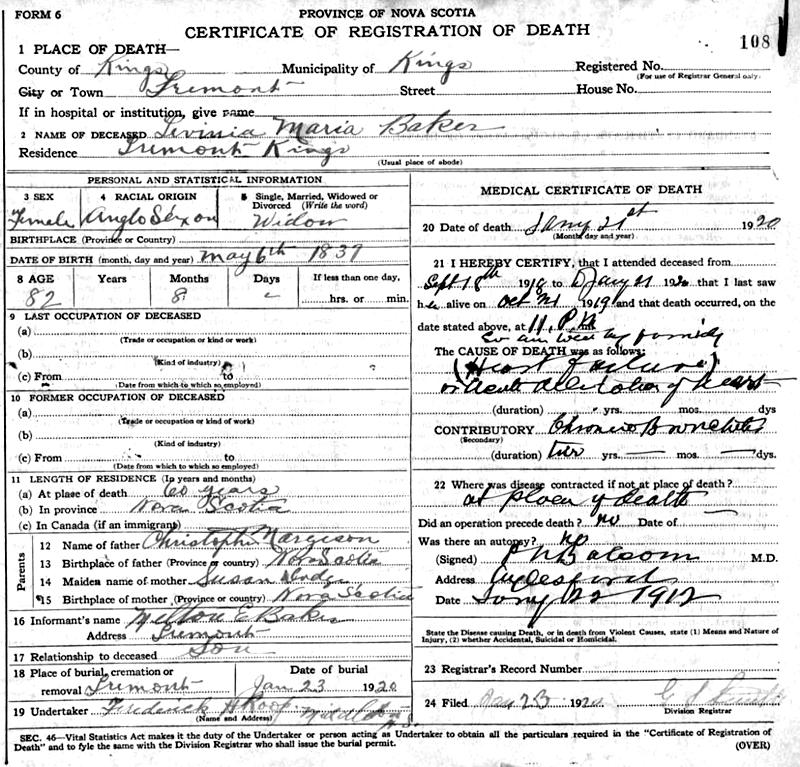 FORM 6
PROVINCE OF NOVA SCOTIA
CERTIFICATE OF REGISTRATION OF DEATH
108
1 PLACE OF DEATH—
County of Kings Municipality of Kings Registered No.
(For use of Registrar General only.
City or Town Tremont Street House No.
If in hospital or institution, give name
2 NAME OF DECEASED Levinia Maria Baker
Residence Tremont Kings
(Usual place of abode)
PERSONAL AND STATISTICAL INFORMATION
3 SEX 4 RACIAL ORIGIN 5 Single, Married, Widowed or Divorced (Write the word)
Female Anglo Saxon Widow
BIRTHPLACE (Province or Country)
DATE OF BIRTH (month, day and year) May 6th 1837
8 AGE Years Months Days If less than one day,
82 8 hrs. or min.
9 LAST OCCUPATION OF DECEASED
(a)
(Trade or occupation or kind or work)
(b)
(Kind of industry)
(c) From to
(Date from which to which so employed)
10 FORMER OCCUPATION OF DECEASED
(a)
(Trade or occupation or kind of work)
(b)
(Kind of industry)
(c) From to
(Date from which to which so employed)
11 LENGTH OF RESIDENCE (In years and months)
(a) At place of death 60 years
(b) In province Nova Scotia
(c) In Canada (if an immigrant)
Parents
12 Name of father Christopher Margeson
13 Birthplace of father (Province or country) Nova Scotia
14 Maiden name of mother Susan
15 Birthplace of mother (Province or country) Nova Scotia
16 Informant's name Milton E Baker
Address Tremont
17 Relationship to deceased Son
18 Place of burial, cremation or removal Tremont Date of burial Jan 23 1920
19 Undertaker Frederick H Roop
(Name and Address)
MEDICAL CERTIFICATE OF DEATH
20 Date of death Jany 21st 1920
(Month day and year)
21 I HEREBY CERTIFY, that I attended deceased from
Sept 18th 1918 to Jany 21 1920 that I last saw
her alive on Oct 1919 and that death occurred, on the
date stated above, at 11 P.M
by family
The CAUSE OF DEATH was as follows:
(Heart failure)
of heart
(duration) yrs. mos. dys
CONTRIBUTORY Chronic Bronchitis
(Secondary)
(duration) two yrs. — mos. — dys.
22 Where was disease contracted if not at place of death?
at place of death
Did an operation precede death? no Date of
Was there an autopsy? no
(Signed) Balsom M.D.
Address Aylesford
Date Jany 22 1912
State the Disease causing Death, or in death from Violent Causes, state (1) Means and Nature of Injury, (2) whether Accidental, Suicidal or Homicidal.
23 Registrar's Record Number
24 Filed Jan 23 1920
Division Registrar
SEC. 46—Vital Statistics Act makes it the duty of the Undertaker or person acting as Undertaker to obtain all the particulars required in the "Certificate of Registration of
Death" and to fyle the same with the Division Registrar who shall issue the burial permit. (OVER)